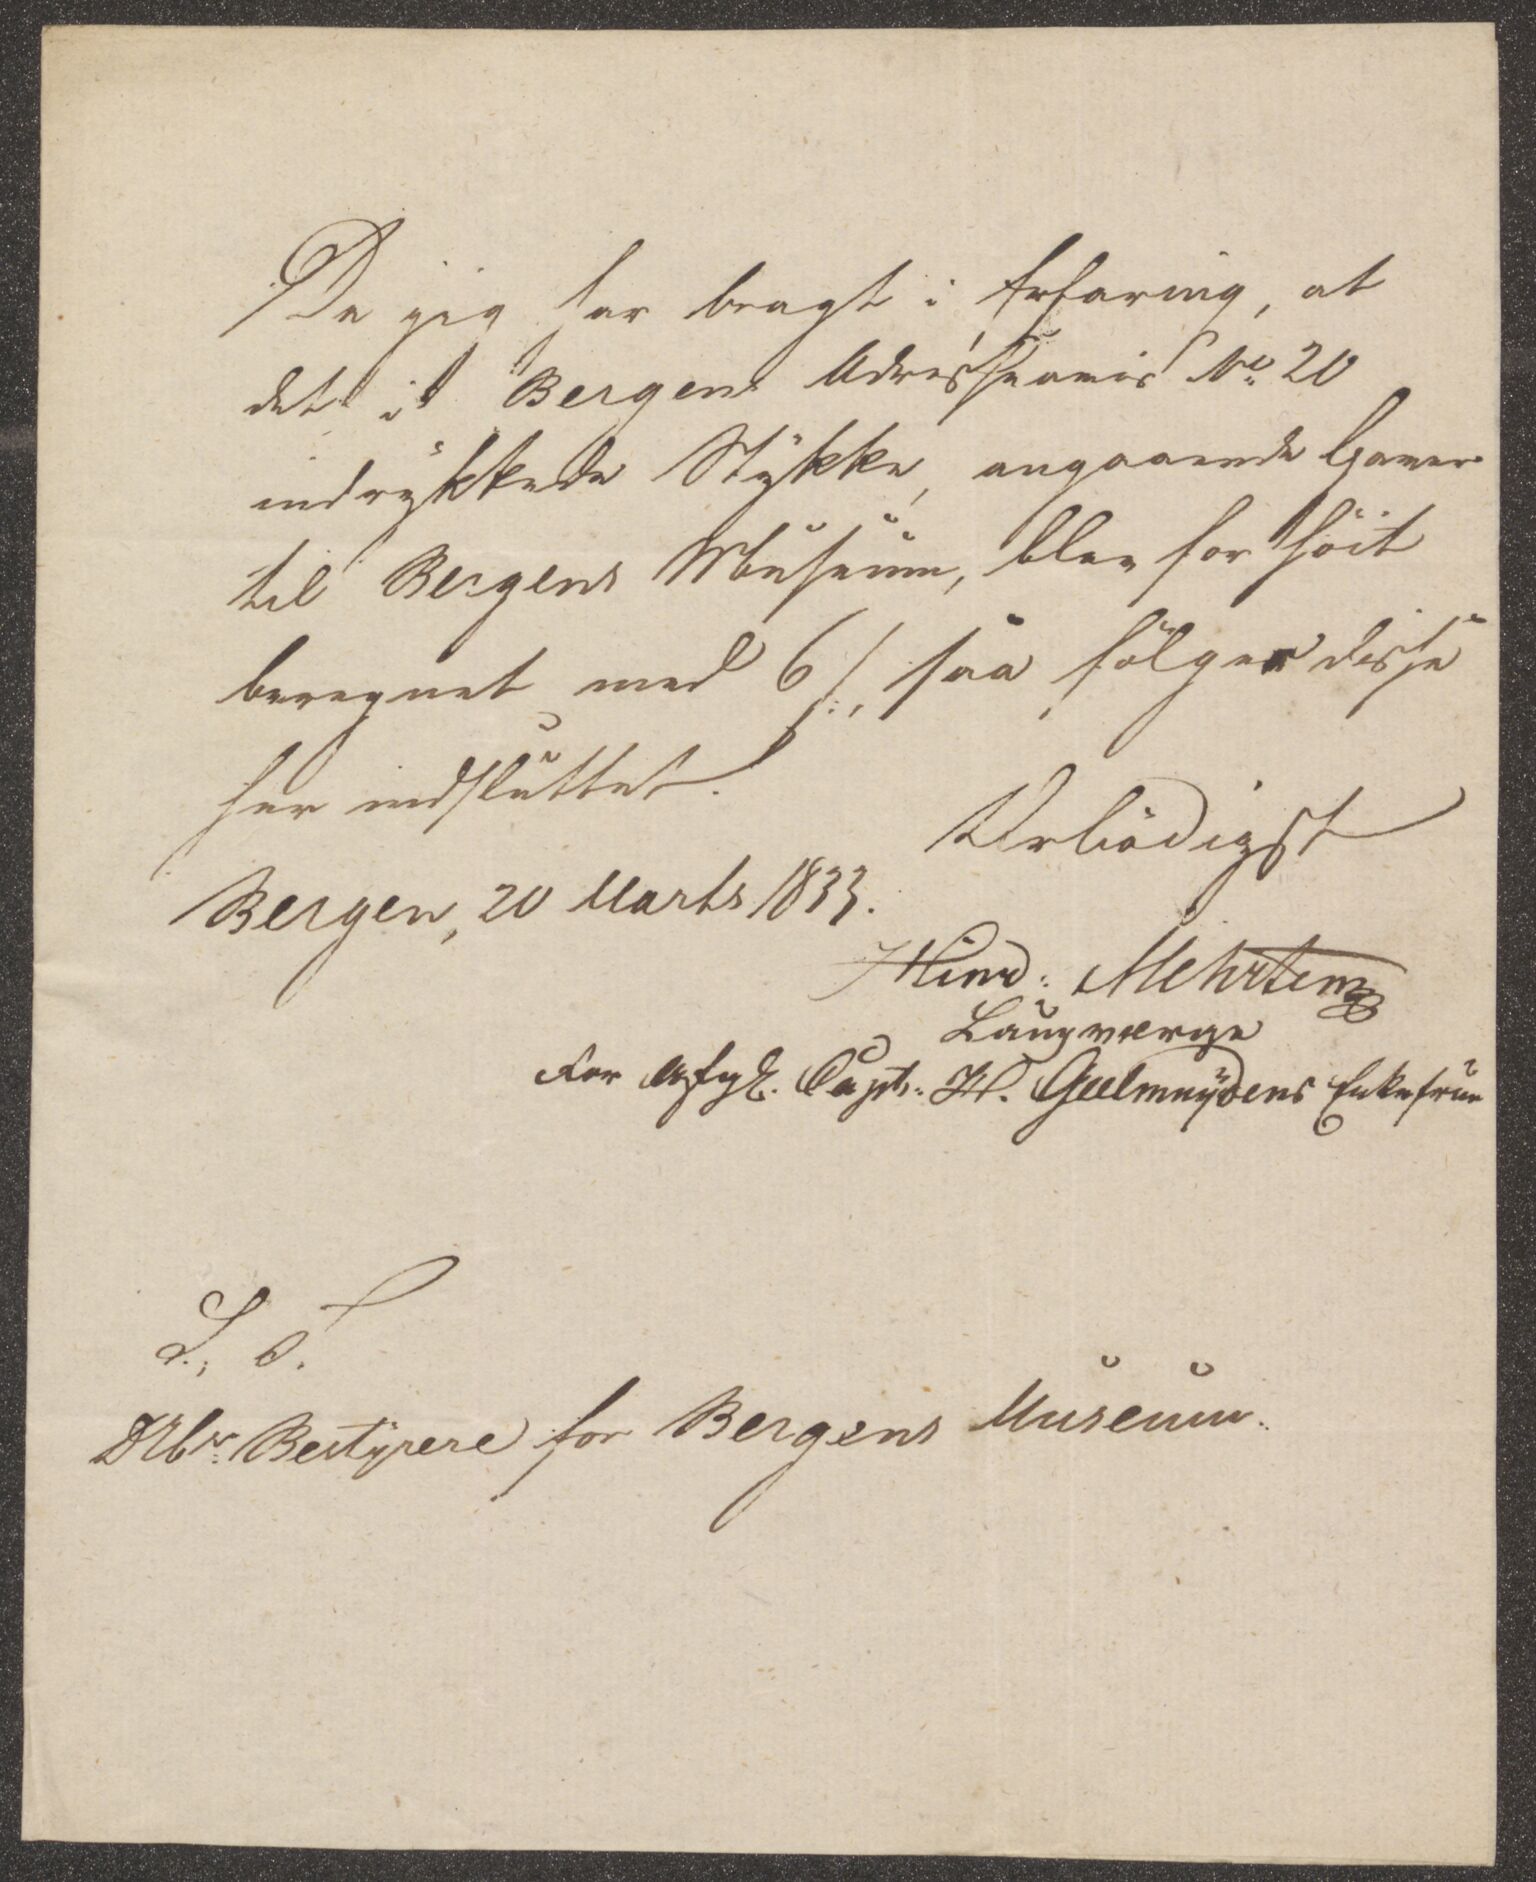 Da jeg har bragt i Erfaring, at
det i Bergens Adresseavis No 20
indrykkede Stykke, angaaende Gaver
til Bergens Museum, blev for höit
beregnet med 6 /:, saa fölger disse
her indsluttet.
Ærbödigst
Bergen, 20 Marts 1833.
Hind: Mehrtens
Laugværge
for Afgl. Capt: H. Geelmuydens Enkefrue
S., T.
DHbr: Bestyrere for Bergens Museum.